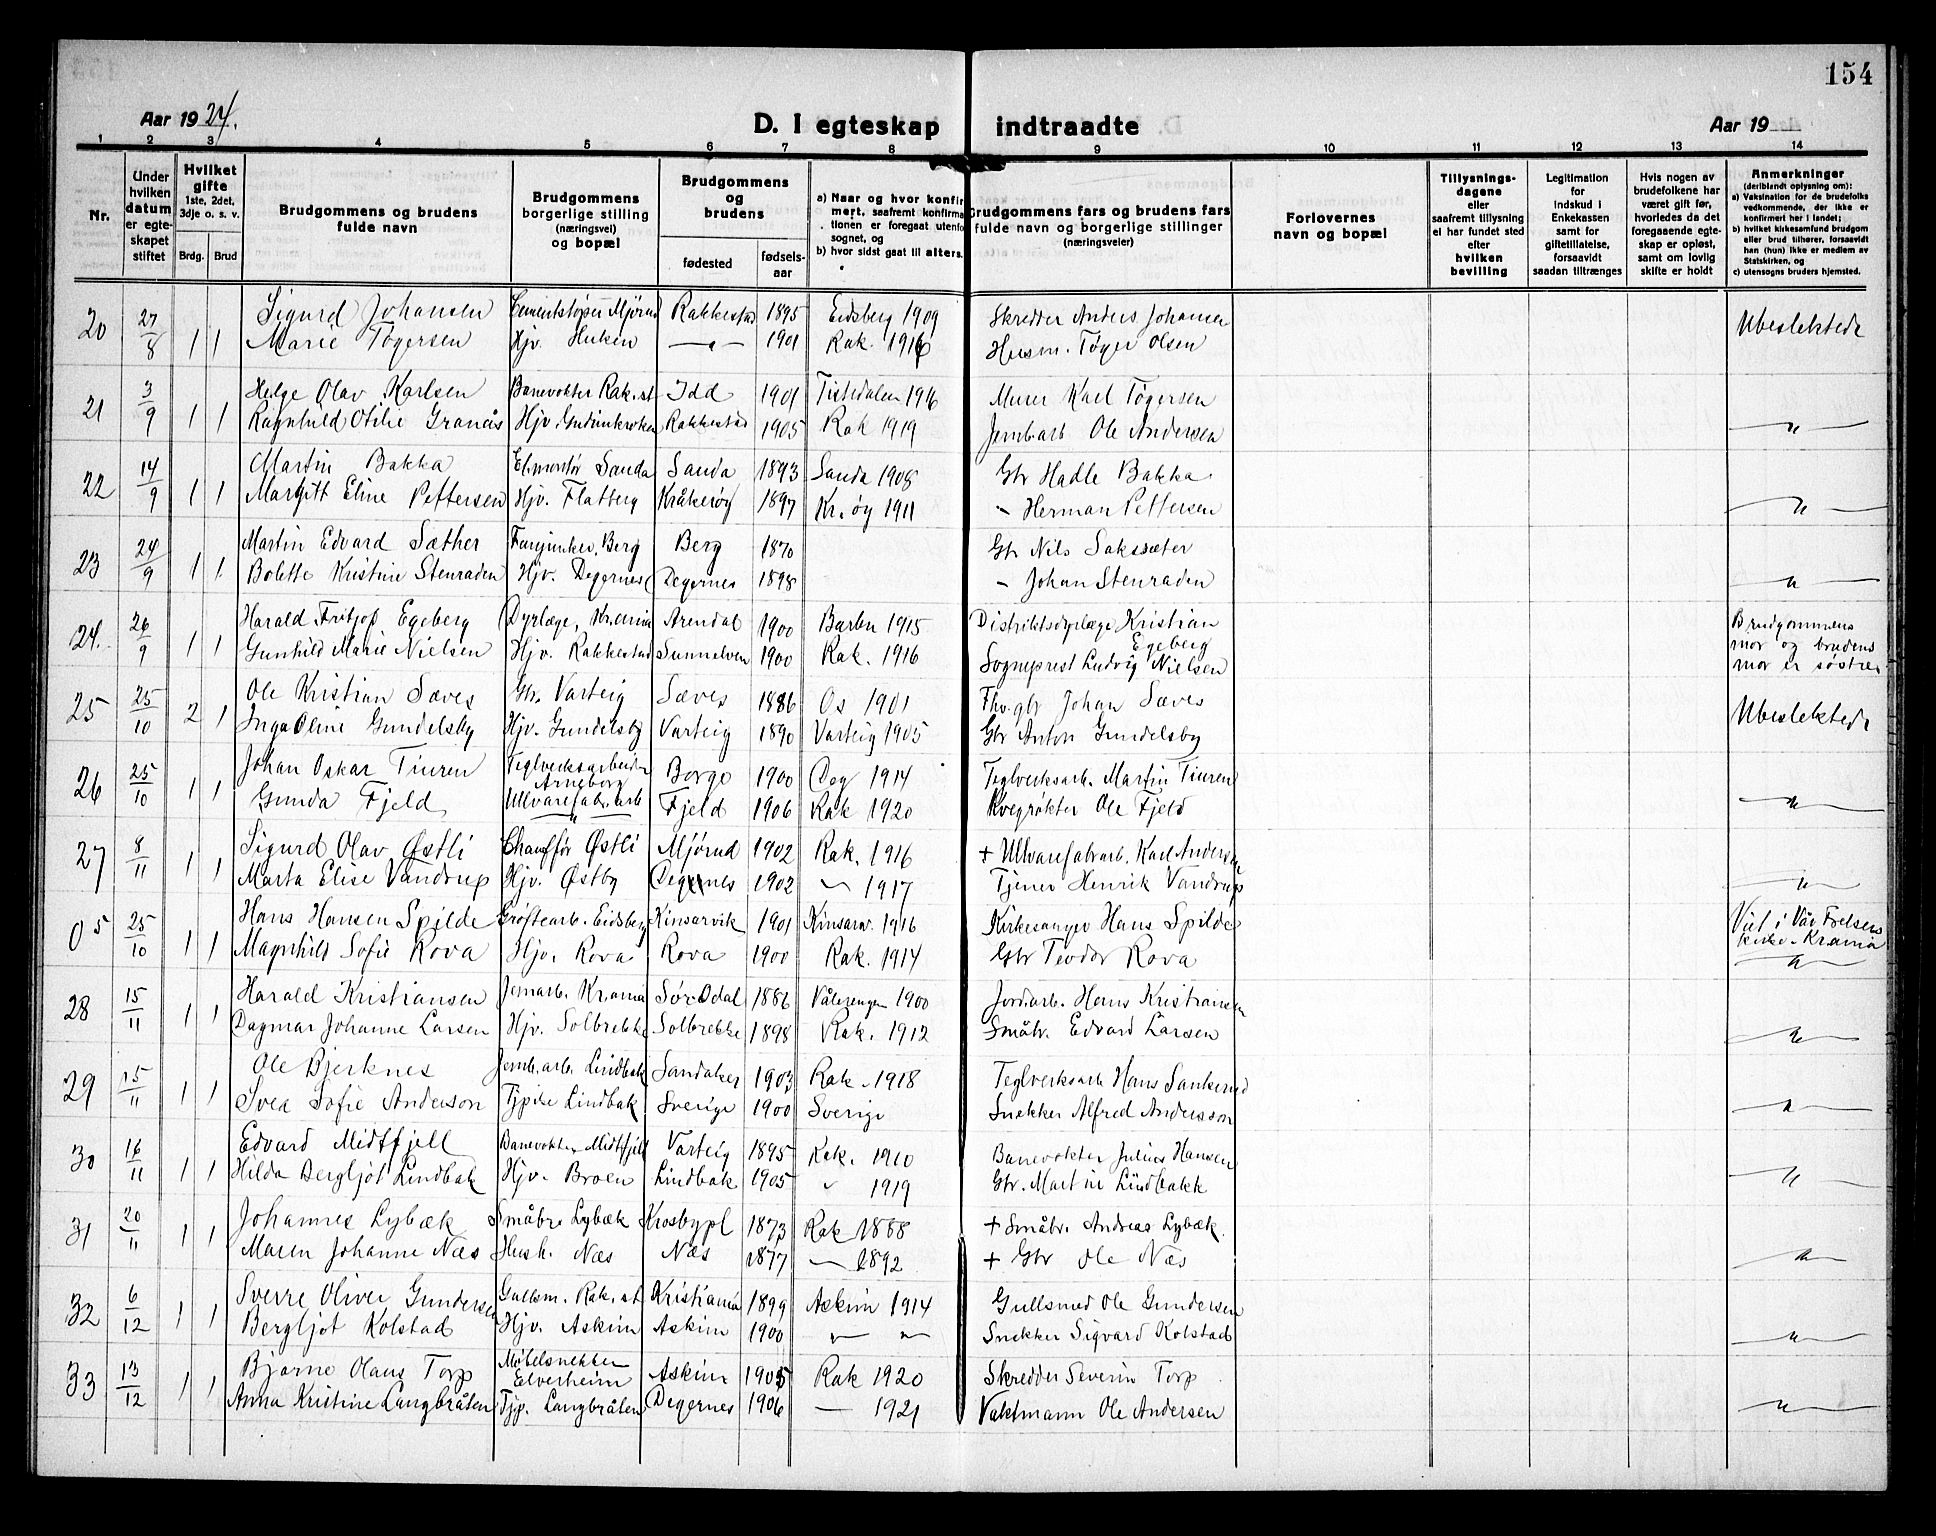 154
Aar 1924.
D. I egteskap indtraadte
Aar 19
1 2 3 4 5 6 7 8 9 10 11 12 13 14
Nr.
Under hvilken datum er egteskapet stiftet
Hvilket gifte 1ste, 2det, 3dje o. s. v.
Brdg. Brud
Brudgommens og brudens fulde navn
Brudgommens borgerlige stilling (næringsvei) og bopæl
Brudgommens og brudens
fødested
fødselsaar
a) Naar og hvor konfirmert, saafremt konfirmationen er foregaat utenfor sognet, og
b) hvor sidst gaat til alters.
Brudgommens fars og brudens fars fulde navn og borgerlige stillinger (næringsveier)
Forlovernes navn og bopæl
Tillysningsdagene eller saafremt tillysning ei har fundet sted efter hvilken bevilling
Legitimation for indskud i Enkekassen samt for giftetillatelse, forsaavidt saadan tiltrænges
Hvis nogen av brudefolkene har været gift før, hvorledes da det foregaaende egteskap er opløst, samt om lovlig skifte er holdt
Anmerkninger
(deriblandt oplysning om):
a) Vaksination for de brudefolks vedkommende, der ikke er konfirmert her i landet;
b) hvilket kirkesamfund brudgom eller brud tilhører, forsaavidt han (hun) ikke er medlem av Statskirken, og
c) utensogns bruders hjemsted.
20 27/8 Sigurd Johansen Cementstøper Mjørud Rakkestad 1895 Eidsberg 1909 Skredder Anders Johansen Ubeslektede
1 1 Marie Tøgersen Hjv. Huken — " — 1901 Rak. 1916 Husm. Tøger Olsen
21 3/9 Helge Olav Karlsen Banevokter Rak. st Idd 1901 Tistedalen 1916 Murer Karl Tøgersen
1 1 Ragnhild Otilie Granås Hjv. Gudimkroken Rakkestad 1905 Rak 1919 Jernbarb Ole Andersen — " —
22 14/9 Martin Bakka El.montør Sanda Sanda 1893 Sanda 1908 Gbr Hadle Bakka
1 1 Margitt Eline Pettersen Hjv. Flatberg Kråkerøy 1897 Kr.øy 1911 " Herman Pettersen — " —
23 24/9 Martin Edvard Sæther Berg Berg 1870 Gbr Nils Sakssæter
1 1 Bolette Kristine Stenraden Hjv. Degernes Degernes 1898 " Johan Stenraden — " —
24. 26/9 Harald Fritjof Egeberg Dyrlæge, Kr.ania Arendal 1900 Barbu 1915 Distriktsdyrlæge Kristian Egeberg Brudgommens mor og brudens mor er søstre
1 1 Gunhild Marie Nielsen Hjv. Rakkestad Sunnelven 1900 Rak. 1916 Sogneprest Ludvig Nielsen
25 25/10 Ole Kristian Sæves Gbr. Varteig Sæves 1886 Os 1901 Fhv. gbr Johan Sæves Ubeslektede
2 1 Inga Oline Gundelsby Hjv. Gundelsby Varteig 1890 Varteig 1905 Gbr Anton Gundelsby
26 25/10 Johan Oskar Tiuren Teglverksarbeider Arneborg Borge 1900 Deg 1914 Teglverksarb. Martin Tiuren
1 1 Gunda Fjeld Ullvarefabr.arb — " — Fjeld 1906 Rak 1920 Kvegrøkter Ole Fjeld — " —
27 8/11 Sigurd Olav Østli Chauffør Østli Mjørud 1902 Rak. 1916 + Ullvarefabarb. Karl Andersen
1 1 Marta Elise Vandrup Hjv. Østby Degernes 1902 " 1917 Tjener Henrik Vandrup — " —
05 25/10 Hans Hansen Spilde Grøftearb. Eidsberg Kinsarvik 1901 Kinsarv. 1916 Kirkesanger Hans Spilde Viet i Vår Frelsers kirke. Kr.ania
1 1 Magnhild Sofie Rova Hjv. Rova Rova 1900 Rak. 1914 Gbr Teodor Rova — " —
28 15/11 Harald Kristiansen Jernarb. Kr.ania Sør-Odal 1886 Vålerengen 1900 Jord.arb. Hans Kristiansen
1 1 Dagmar Johanne Larsen Hjv. Solbrekke Solbrekke 1898 Rak. 1912 Småbr. Edvard Larsen — " —
29 15/11 Ole Bjerknes Jernb.arb. Lindbak Sandaker 1903 Rak. 1918 Teglverksarb Hans
1 1 Svea Sofie Anderson Tjpike Lindbak Sverige 1900 Sverige Snekker Alfred Andersson — " —
30 16/11 Edvard Midtfjell Banevokter Midtfjell Varteig 1895 Rak. 1910 Banevokter Julius Hansen
1 1 Hilda Bergljot Lindbak Hjv. Broen Lindbak 1905 " 1919 Gbr. Martin Lindbakk — " —
31 20/11 Johannes Lybæk Småbr. Lybæk Krosbypl 1873 Rak 1888 + Småbr. Andreas Lybæk.
1 1 Maren Johanne Næs Hush. Næs Næs 1877 — " 1892 + Gbr Ole Næs — " —
32 6/12 Sverre Oliver Gundersen Gullsm. Rak. st Kristiania 1899 Askim 1914 Gullsmed Ole Gundersen
1 1 Bergljot Kolstad Hjv. Askim Askim 1900 — " — " Snekker Sigvard Kolstad — " —
33 13/12 Bjarne Olaus Torp Møbelsnekker Elverheim Askim 1905 Rak 1920 Skredder Severin Torp
1 1 Anna Kristine Langbråten Tjp. Langbråten Degernes 1906 — 1921 Vaktmann Ole Andersen — " —